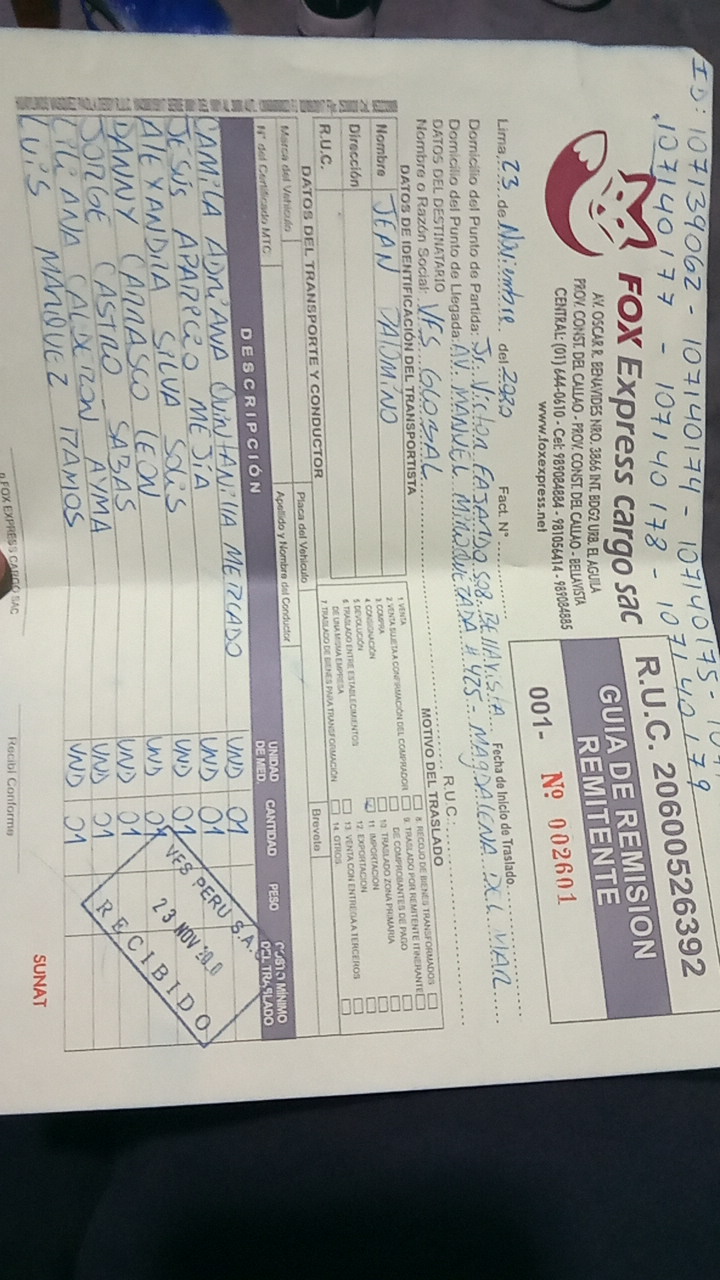 ID: 107139062 - 107140174 - 107140175 - 107
107140177 - 107140178 - 107140179
FOX Express cargo sac
AV. OSCAR R. BENAVIDES NRO. 3866 INT. BDG2 URB. EL AGUILA
PROV. CONST. DEL CALLAO - PROV. CONST. DEL CALLAO - BELLAVISTA
CENTRAL: (01) 644-0610 - Cel: 989084884 - 981056414 - 989084885
www.foxexpress.net
R.U.C. 20600526392
GUIA DE REMISION
REMITENTE
001- Nº 002601
Lima, 23 de Noviembre del 2020 Fact. Nº Fecha de Inicio de Traslado.
Domicilio del Punto de Partida: Jr. Victor FAJARDO 598. BELLAVISTA
Domicilio del Punto de Llegada: AV. MANUEL # 425 - MAGDALENA DEL MAR
DATOS DEL DESTINATARIO
Nombre o Razón Social: VFS GLOBAL R.U.C.
DATOS DE IDENTIFICACIÓN DEL TRANSPORTISTA
Nombre JEAN PALOMINO
Dirección
R.U.C.
MOTIVO DEL TRASLADO
1. VENTA
2. VENTA SUJETA A CONFIRMACIÓN DEL COMPRADOR
3. COMPRA
4. CONSIGNACIÓN
5. DEVOLUCIÓN
6. TRASLADO ENTRE ESTABLECIMIENTOS
DE UNA MISMA EMPRESA
7. TRASLADO DE BIENES PARA TRANSFORMACIÓN
8. RECOJO DE BIENES TRANSFORMADOS
9. TRASLADO POR REMITENTE ITINERANTE
DE COMPROBANTES DE PAGO
10. TRASLADO ZONA PRIMARIA
11. IMPORTACIÓN
12. EXPORTACIÓN
13. VENTA CON ENTREGA A TERCEROS
14. OTROS
DATOS DEL TRANSPORTE Y CONDUCTOR
Marca del Vehículo Placa del Vehículo Brevete
Nº del Certificado MTC Apellido y Nombre del Conductor
DESCRIPCIÓN UNIDAD DE MED. CANTIDAD PESO COSTO MÍNIMO DEL TRASLADO
CAMILA ADRIANA QUINTANILLA MERCADO UND 01
JESÚS APARICIO MEJÍA UND 01
ALEXANDRA SILVA SOLIS UND 01
DANNY CARRASCO LEON UND 01
JORGE CASTRO SABAS UND 01
LILIANA CALDERON AYMA UND 01
LUIS MANRIQUEZ RAMOS UND 01
VFS PERU S.A.
23 NOV 20.0
RECIBIDO
FOX EXPRESS CARGO SAC
Recibí Conforme
SUNAT